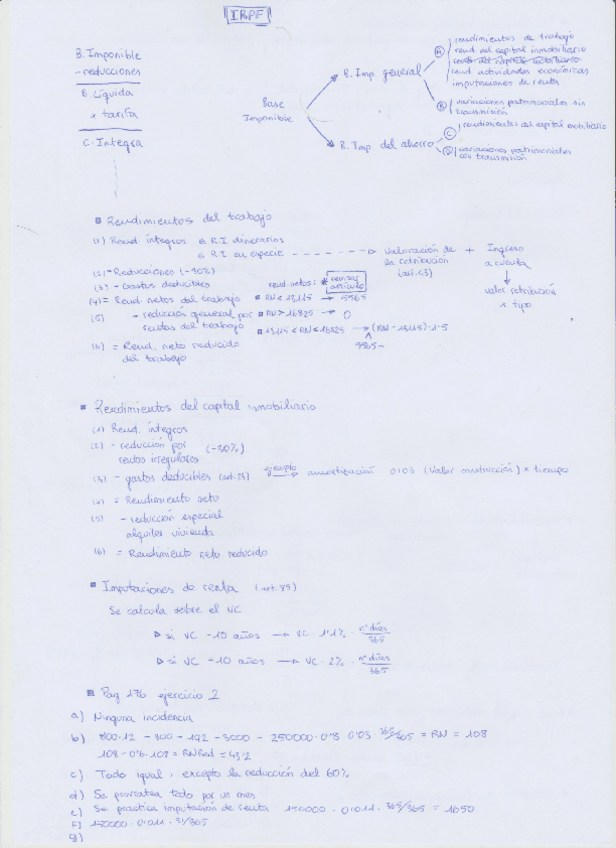 IRPF
B. Imponible
- reducciones
B. Líquida
x tarifa
C. Íntegra
Base
Imponible
B. Imp. general
B. Imp. del ahorro
A
rendimientos de trabajo
rend. del capital inmobiliario
rend. actividades económicas
imputaciones de renta
B
variaciones patrimoniales sin
transmisión
C
rendimientos del capital mobiliario
D
variaciones patrimoniales
con transmisión
Rendimientos del trabajo
(1) Rend. íntegros
R.I dinerarios
R.I en especie
valoración de
la retribución
(art. 43)
+
Ingreso
a cuenta
valor retribución
x tipo
(2) - Reducciones (-30%)
(3) - Gastos deducibles
rend. netos:
revisar
artículo
(4) = Rend. netos del trabajo
(5) - reducción general por
rentas del trabajo
RN > 16825 → 0
(6) = Rend. neto reducido
del trabajo
Rendimientos del capital inmobiliario
(1) Rend. íntegros
(2) - reducción por
rentas irregulares
(-30%)
(3) - gastos deducibles
ejemplo
amortización 0'03 (Valor construcción) x tiempo
(4) = Rendimiento neto
(5) - reducción especial
alquiler vivienda
(6) = Rendimiento neto reducido
Imputaciones de renta (art. 85)
Se calcula sobre el VC
si VC -10 años → VC · 1'1% · nº días / 365
si VC -10 años → VC · 2% · nº días / 365
Pag 176 ejercicio 2
a) Ninguna incidencia
b) 300·12 - 300 - 192 - 3000 -
365/365 = RN = 108
108 - 0'6 · 108 = RNRed = 43'2
c) Todo igual, excepto la reducción del 60%
d) Se prorratea todo por un mes
e) Se practica imputación de renta 150000 · 0'011 · 365/365 = 1650
f) 150000 · 0'011 · 31/365
g)